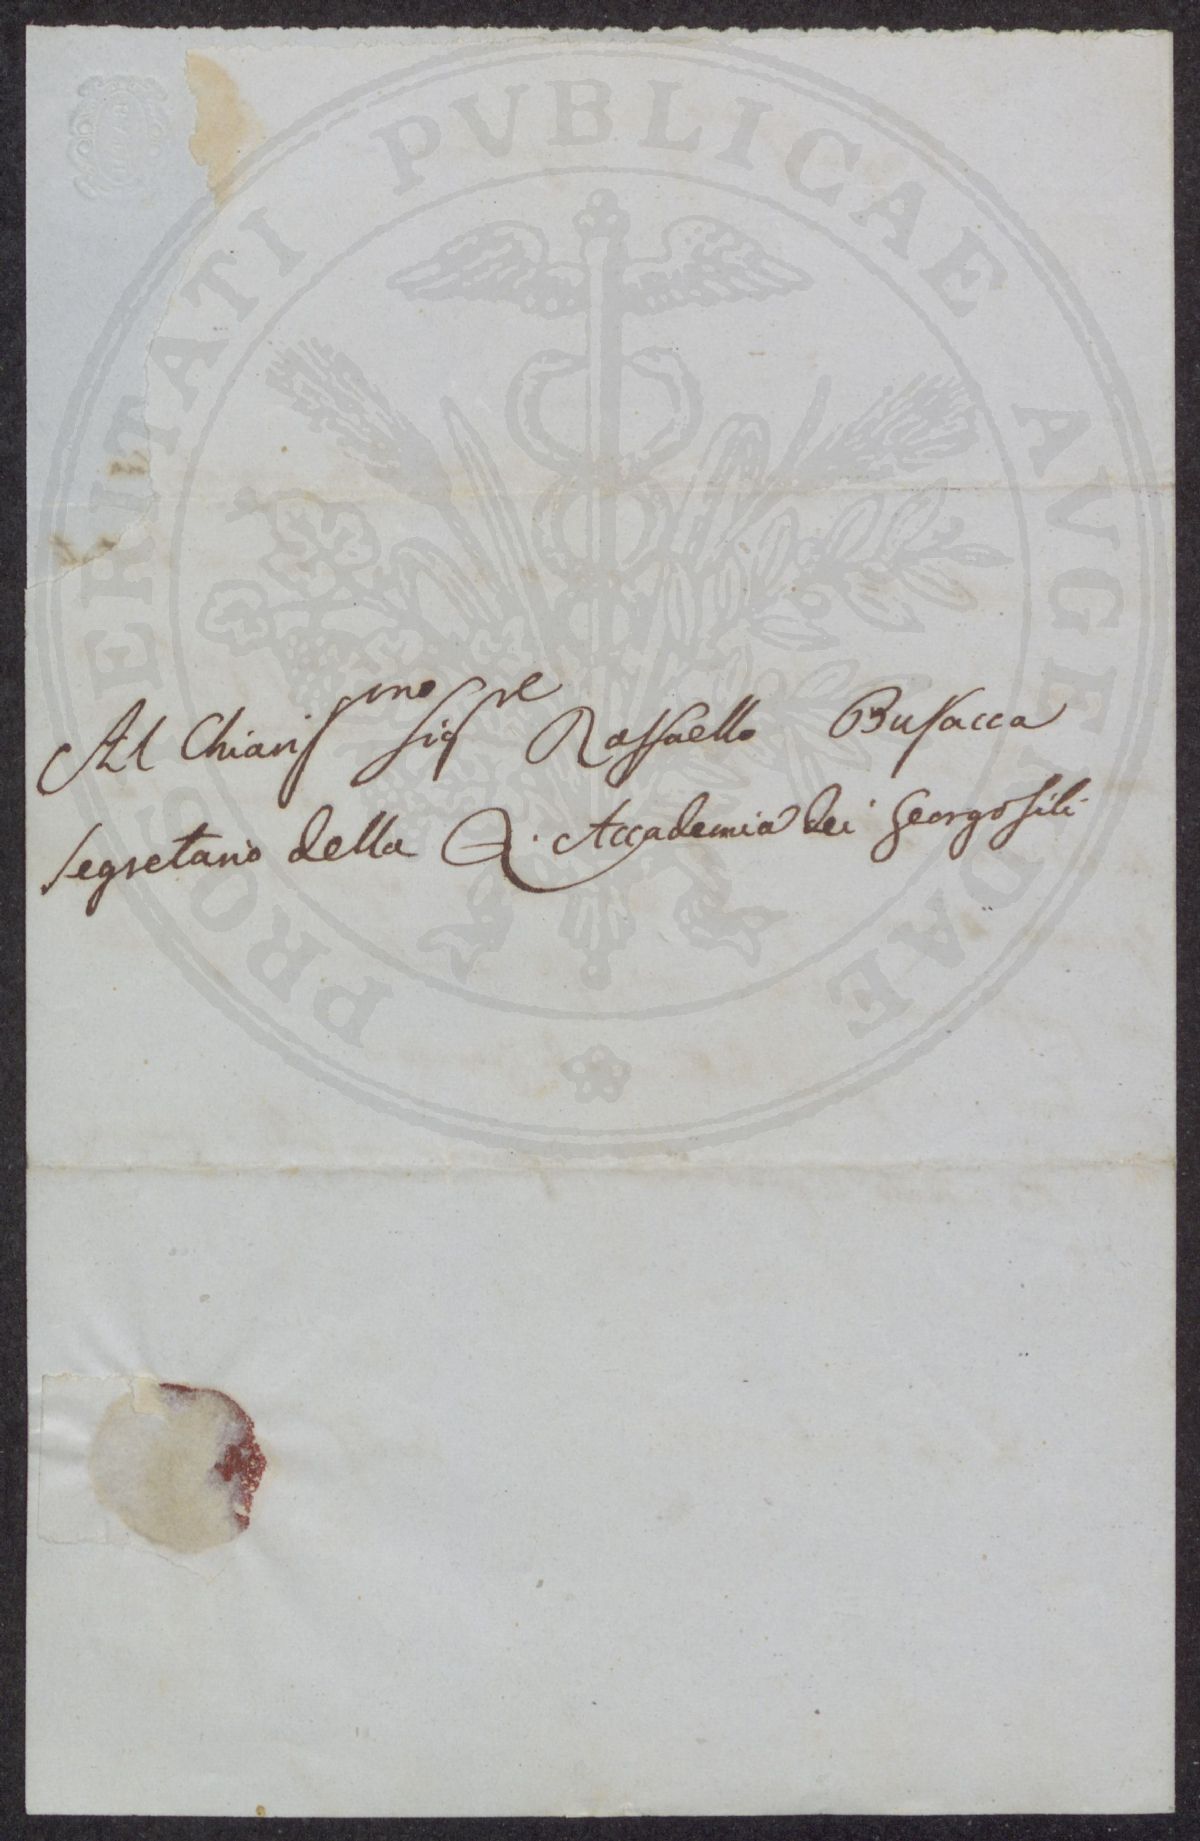 PROSPERITATI PVBLICAE AVGENDAE
Al Chiaris.mo Sig.re Raffaello Busacca
Segretario della R. Accademia dei Georgofili